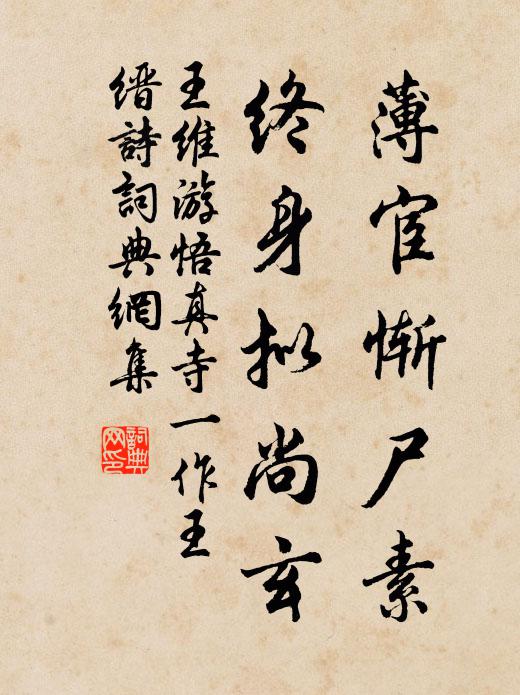 薄宦惭尸素
终身拟尚玄
王维游悟真寺一作王
缙詩詞典網集
詞典网印